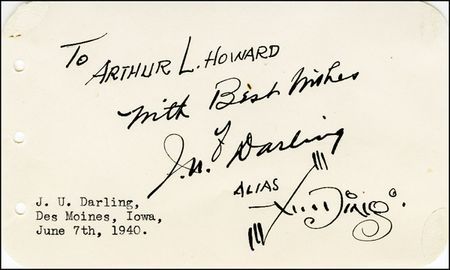 To
ARTHUR L. HOWARD
With Best Wishes
J. N. Darling
ALIAS
Ding.
J. U. Darling,
Des Moines, Iowa,
June 7th, 1940.